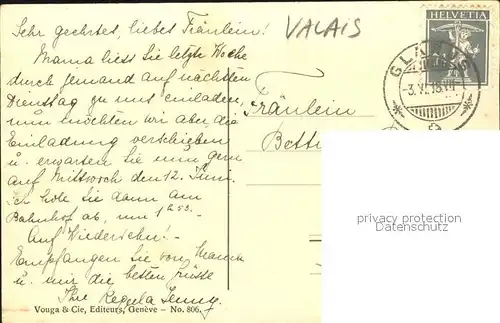 Sehr geehrtes, liebes Fräulein!
VALAIS
Mama liess Sie letzte Woche
durch jemand auf nächsten
Dienstag zu uns einladen,
nun möchten wir aber die
Einladung verschieben
u. erwarten Sie nun gern
auf Mittwoch den 12. Juni.
Ich hole Sie dann am
Bahnhof ab, um 1 53.
Auf Wiedersehn!
Empfangen Sie von Mama
u. mir die besten Grüsse
Ihre Regula Jenny.
Vouga & Cie, Editeurs, Genève — No. 806.
Fräulein
Betti
HELVETIA
GLARUS
privacy protection
Datenschutz